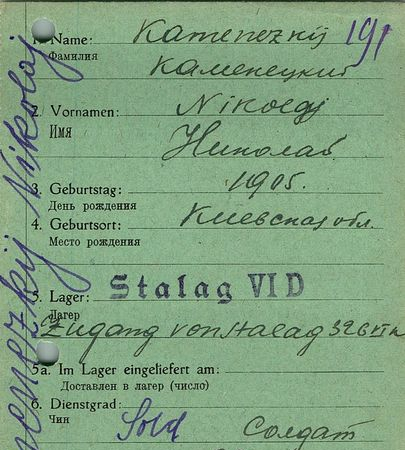 1. Name: Kamenezkij 191
Фамилия Каменецкий
2. Vornamen: Nikolaj
Имя Николай
3. Geburtstag: 1905.
День рождения
4. Geburtsort: Киевская обл.
Место рождения
5. Lager: Stalag VI D
Лагерь
Zugang von Stalag 326 VI K
5a. Im Lager eingeliefert am:
Доставлен в лагерь (число)
6. Dienstgrad: Sold Солдат
Чин
Nikolaj